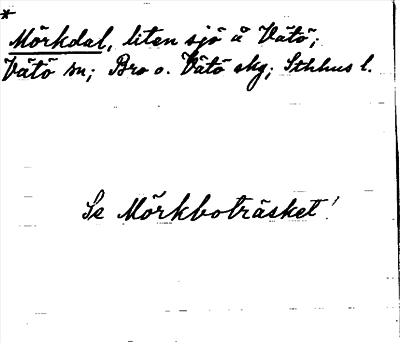 *
Mörkdal, liten sjö å Vätö;
Vätö sn; Bro o. Vätö skg; Sthlms l.
Se Mörkboträsket!